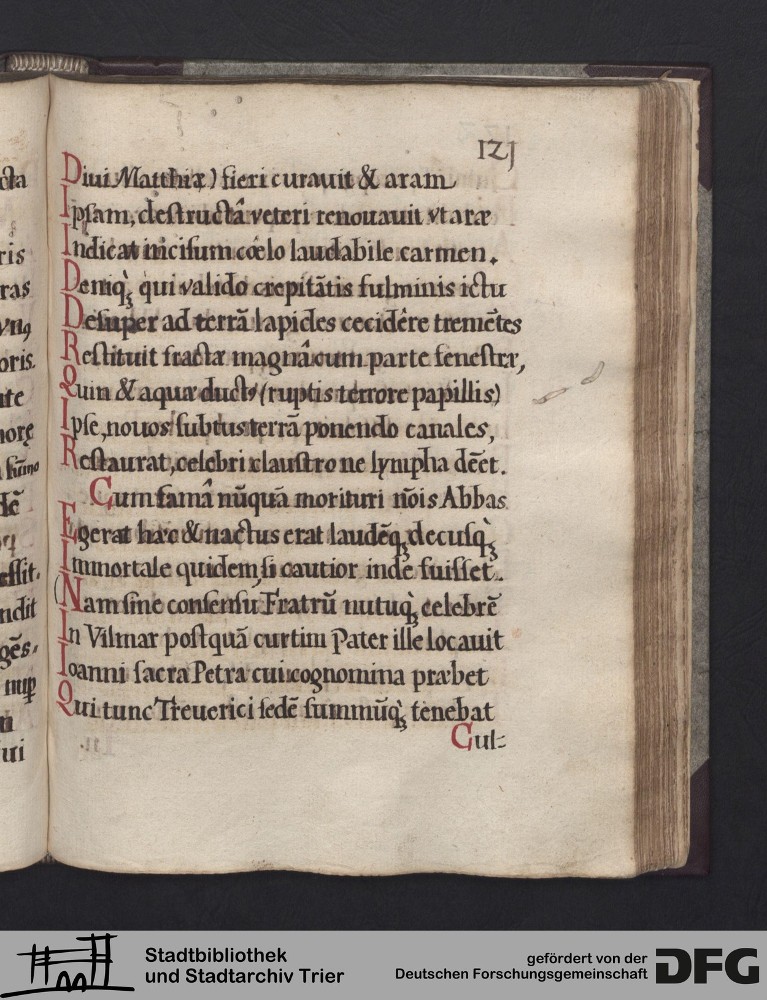 cta
ris
ras
vnꝰ
oris.
ite
dē
essit.
ndit
gēs.
nuꝑ
ui
121
Diui Matthiæ) fieri curauit & aram
Ipsam, destructâ veteri renouauit vt aræ
Indicat incisum cœlo laudabile carmen.
Deniq̀; qui valido crepitātis fulminis ictu
Desuper ad terrā lapides cecidêre tremētes
Restituit fractæ magnâ cum parte fenestræ,
Quin & aquæ ductꝰ (ruptis terrore papillis)
Ipse, nouos subtus terrā ponendo canales,
Restaurat, celebri claustro ne lympha dēet.
Cum famâ nūquā morituri nōis Abbas
Egerat hæc & nactus erat laudēq; decusq̀;
Immortale quidem, si cautior inde fuisset.
(Nam sine consensu Fratrū nutuq̀; celebrē
In Vilmar postquā curtim Pater ille locauit
Ioanni sacra Petra cui cognomina præbet
Qui tunc Treuerici sedē summūq̀; tenebat
Cul=
Stadtbibliothek
und Stadtarchiv Trier
gefördert von der
Deutschen Forschungsgemeinschaft
DFG